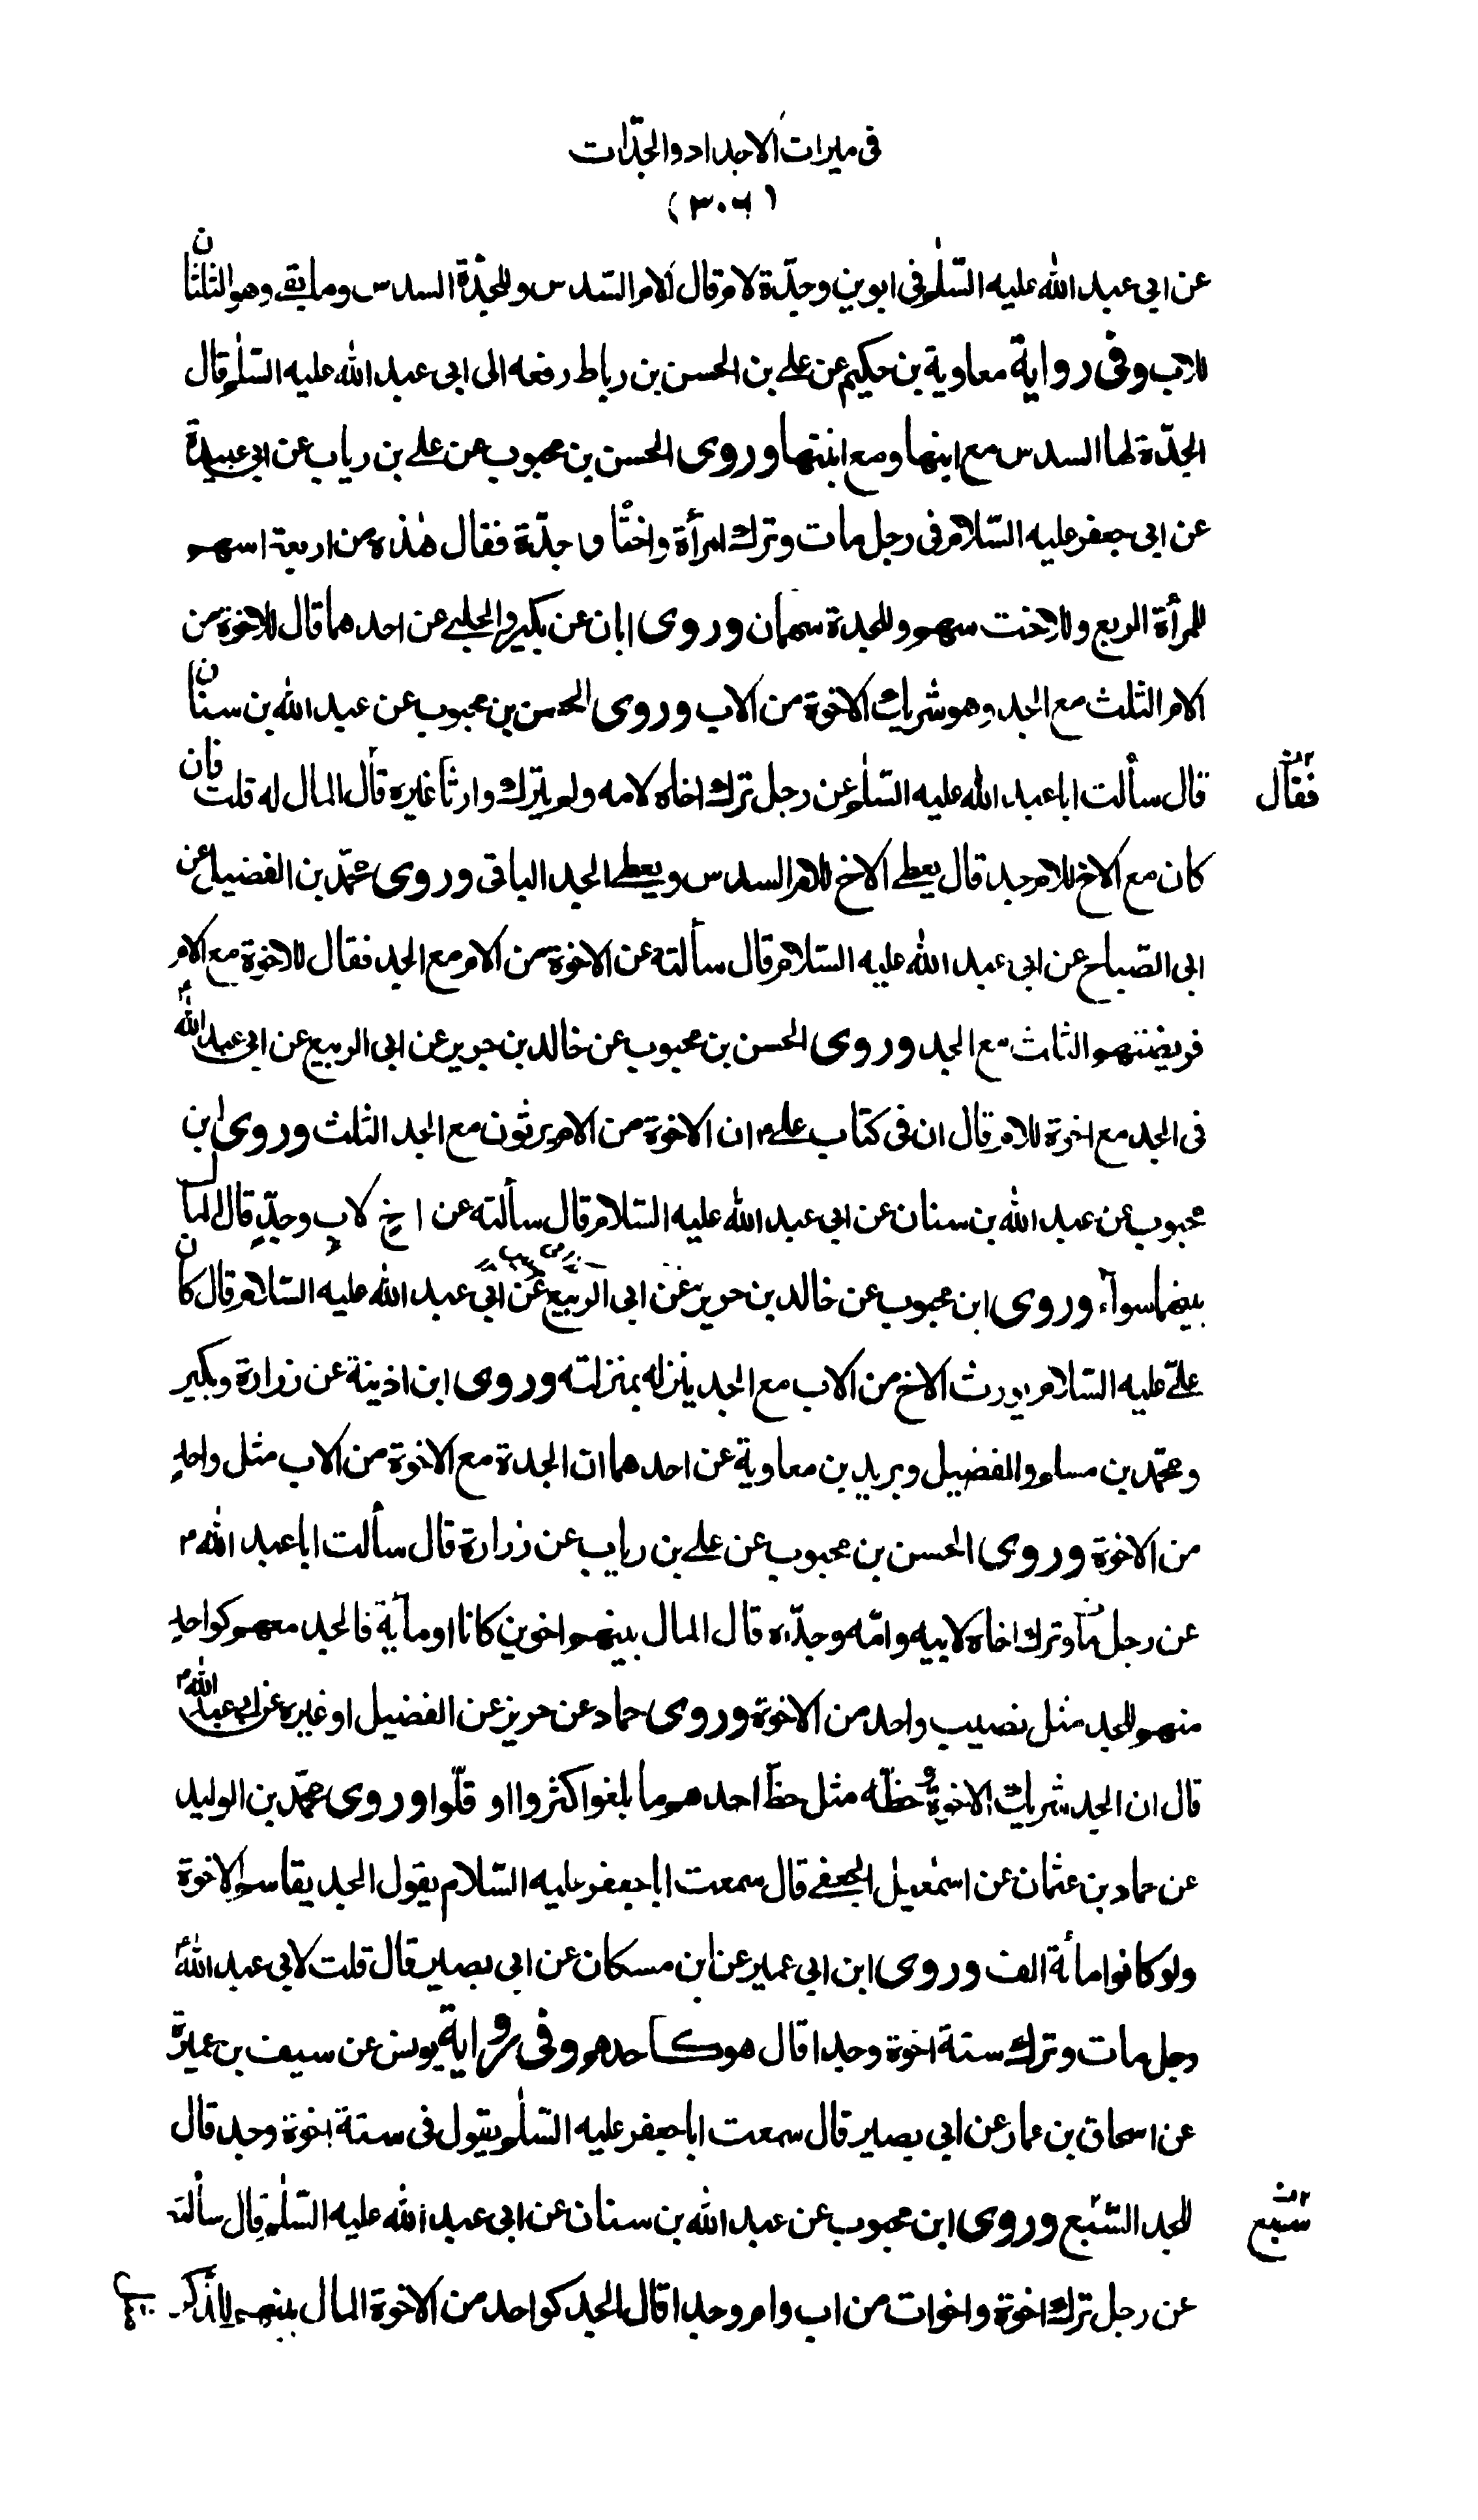 فى ميراث الاجداد والجدّات
(٣٠٦)
عن ابى عبد الله عليه السّلم فى ابوين وجدّة لام قال للام السّدس وللجدّة السدس وما بقى وهو الثلثان
للاب وفى رواية معاوية بن حكيم عن على بن الحسن بن رباط رفعه الى ابى عبد الله عليه السّلم قال
الجدّة لها السدس مع ابنها ومع ابنتها وروى الحسن بن محبوب عن على بن رياب عن ابى عبيدة
عن ابى جعفر عليه السّلام فى رجل مات وترك امرأة واختًا وجدّة فقال هذه من اربعة اسهم
للمرأة الربع وللاخت سهم وللجدة سهمان وروى ابان عن بكير والحلبى عن احدهما قال للاخوة من
الام الثلث مع الجد وهو شريك الاخوة من الاب وروى الحسن بن محبوب عن عبد الله بن سنان
قال سألت ابا عبد الله عليه السّلم عن رجل ترك اخاه لامه ولم يترك وارثًا غيره قال المال له قلت فان
فقال
كان مع الاخ للام جد قال يعطى الاخ للام السدس ويعطى الجد الباقى وروى محمّد بن الفضيل عن
ابى الصّباح عن ابى عبد الله عليه السّلام قال سألته عن الاخوة من الام مع الجد فقال للاخوة مع الام
فريضتهم الثلث مع الجد وروى الحسن بن محبوب عن خالد بن جرير عن ابى الربيع عن ابى عبد الله ؑ
فى الجد مع اخوة للام قال ان فى كتاب على ؑ ان الاخوة من الام يرثون مع الجد الثلث وروى ابن
محبوب عن عبد الله بن سنان عن ابى عبد الله عليه السّلام قال سألته عن اخ لاب وجدّ قال المال
بينهما سوآء وروى ابن محبوب عن خالد بن حريز عن ابى الربيع عن ابى عبد الله عليه السّلام قال كان
علىّ عليه السّلام يورث الاخ من الاب مع الجد ينزله بمنزلته وروى ابن اذينة عن زرارة وبكير
ومحمّد بن مسلم والفضيل وبريد بن معاوية عن احدهما ان الجدة مع الاخوة من الاب مثل واحدٍ
من الاخوة وروى الحسن بن محبوب عن على بن رياب عن زرارة قال سألت ابا عبد الله ؑ
عن رجل مات وترك اخاه لابيه وامّه وجدّه قال المال بينهم اخوين كانا او مأية فالجد معهم كواحدٍ
منهم للجد مثل نصيب واحد من الاخوة وروى حماد عن حريز عن الفضيل او غيره عن ابى عبد الله ؑ
قال ان الجد شريك الاخوة وحظّه مثل حظّ احدهم ما بلغوا كثروا او قلّوا وروى محمّد بن الوليد
عن حماد بن عثمان عن اسمعيل الجعفى قال سمعت ابا جعفر عليه السّلام يقول الجد يقاسم الاخوة
ولو كانوا مأئة الف وروى ابن ابى عمير عن ابن مسكان عن ابى بصير قال قلت لابى عبد الله ؑ
رجل مات وترك ستة اخوة وجدا قال هو كاحدهم وفى رواية يونس عن سيف بن عميرة
عن اسحاق بن عمار عن ابى بصير قال سمعت ابا جعفر عليه السّلم يقول فى ستة اخوة وجد قال
للجد السّبع وروى ابن محبوب عن عبد الله بن سنان عن ابى عبد الله عليه السّلم قال سألته
سبع
عن رجل ترك اخوة واخوات من اب وام وجدا قال الجد كواحد من الاخوة المال بينهم للذكر